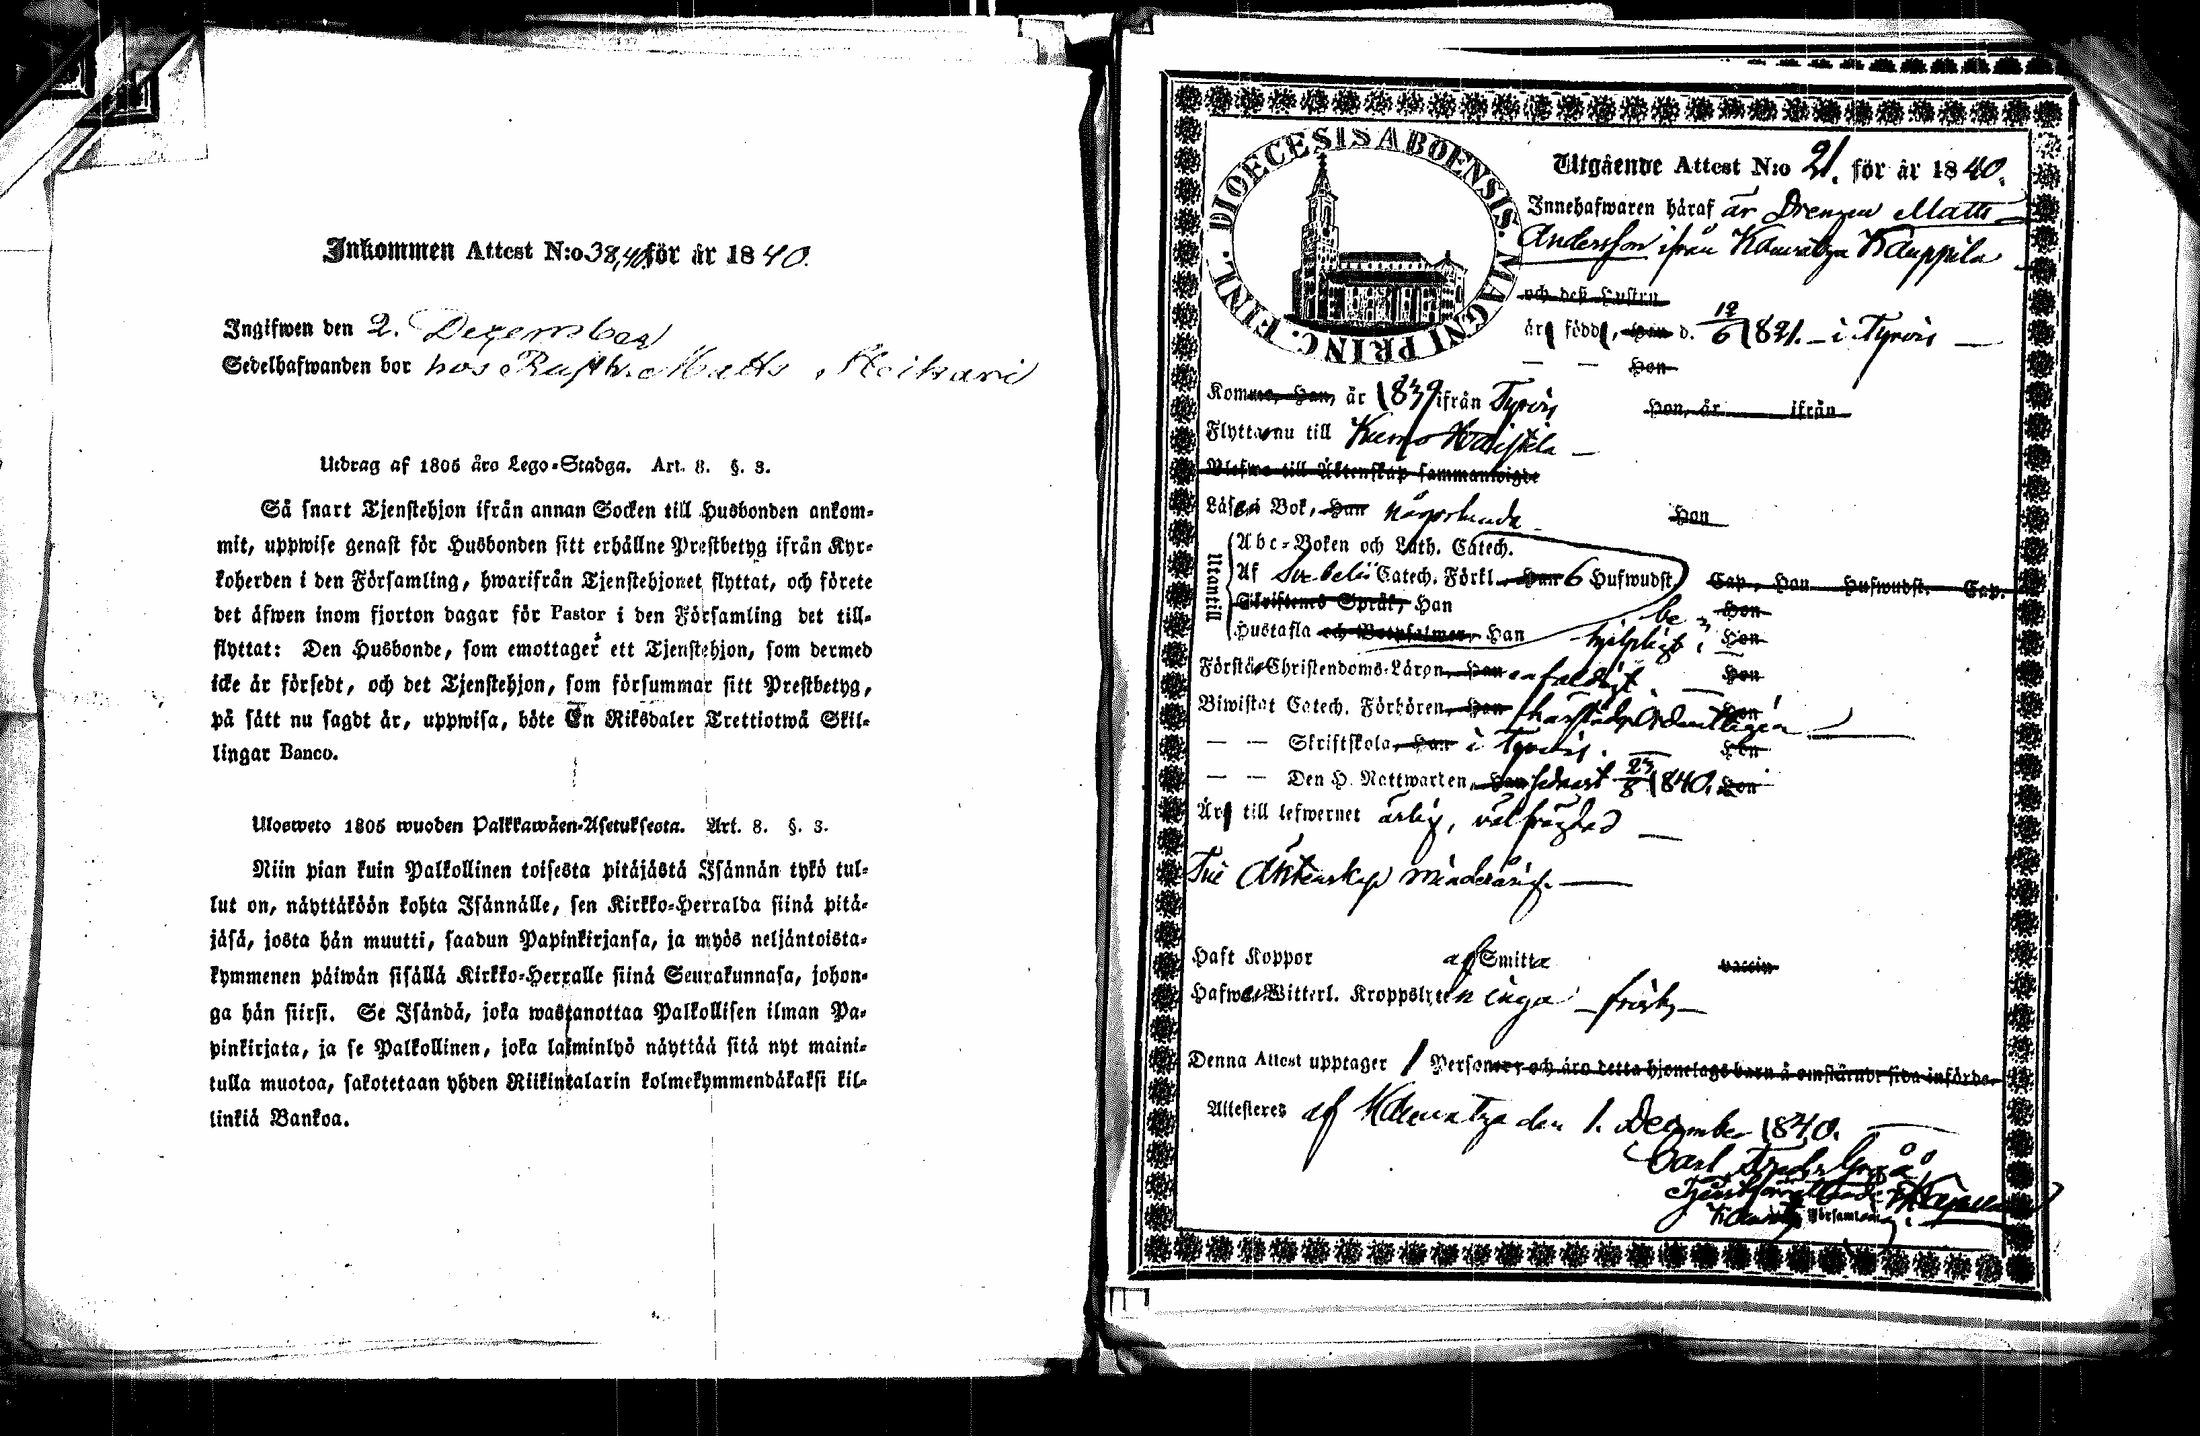 Inkommen Attest N:o 38, för år 1840.
Ingifwen den 2. December
Sedelhafwanden bor hos Rusth. Matts Heikari
Utdrag af 1805 års Lego-Stadga. Art. 8. §. 3.
Så snart Tjenstehjon ifrån annan Socken till Husbonden ankom-
mit, uppwise genast för Husbonden sitt erhållne Prestbetyg ifrån Kyr-
koherden i den Församling, hwarifrån Tjenstehjonet flyttat, och förete
det äfwen inom fjorton dagar för Pastor i den Församling det till-
flyttat: Den Husbonde, som emottager ett Tjenstehjon, som dermed
icke är försedt, och det Tjenstehjon, som försummar sitt Prestbetyg,
på sätt nu sagdt är, uppwisa, böte En Riksdaler Trettiotwå Skil-
lingar Banco.
Ulosweto 1805 wuoden Palkkawäen-Asetuksesta. Art. 8. §. 3.
Niin pian kuin Palkollinen toisesta pitäjästä Isännän tykö tul-
lut on, näyttäköön kohta Isännälle, sen Kirkko-Herralda siinä pitä-
jäsä, josta hän muutti, saadun Papinkirjansa, ja myös neljäntoista-
kymmenen päiwän sisällä Kirkko-Herralle siinä Seurakunnasa, johon-
ga hän siirsi. Se Isändä, joka wastanottaa Palkollisen ilman Pa-
pinkirjata, ja se Palkollinen, joka laiminlyö näyttää sitä nyt maini-
tulla muotoa, sakotetaan yhden Riikintalarin kolmekymmendäkaksi kil-
linkiä Bankoa.
DIOECESIS ABOENSIS. MAGNI PRINC. FINL.
Utgående Attest N:o 21. för år 1840.
Innehafwaren häraf är Drengen Matts
Andersson ifrån Kauvatza Kauppila
och dess Hustru
är född, Han d. 12/6 1821. i Tyrvis
Hon
Kommo, Han, år 1839 ifrån Tyrvis Hon, år ifrån
Flytta nu till Kumo
Blefwo till Äktenskap sammanwigde
Läser i Bok, Han Hon
Utantill
Abc-Boken och Luth. Catech.
Af Svebelii Catech. Förkl., Han 6 Hufwudst. Cap., Hon Hufwudst. Cap.
Skriftenes Språk, Han Hon
Hustafla och Botpsalmer, Han behjelpligt Hon
Förstå Christendoms-Läran, Han enfaldigt Hon
Biwistat Catech. Förhören, Han härstädes ordentligen Hon
— — Skriftskola, Han i Tyrvis. Hon
— — Den H. Nattwarden, Han sednast 23/8 1840. Hon
Är till lefwernet ärlig, välfrägdad
Till Äktenskap minderårig.
Haft Koppor af Smitta vaccin
Hafwa Witterl. Kroppslyten inga frisk
Denna Attest upptager 1 Personer, och äro detta hjonelags barn å omstående sida införde.
Attesteres af Kauvatza den 1. December 1840.
Carl
Kauvatza Församling.